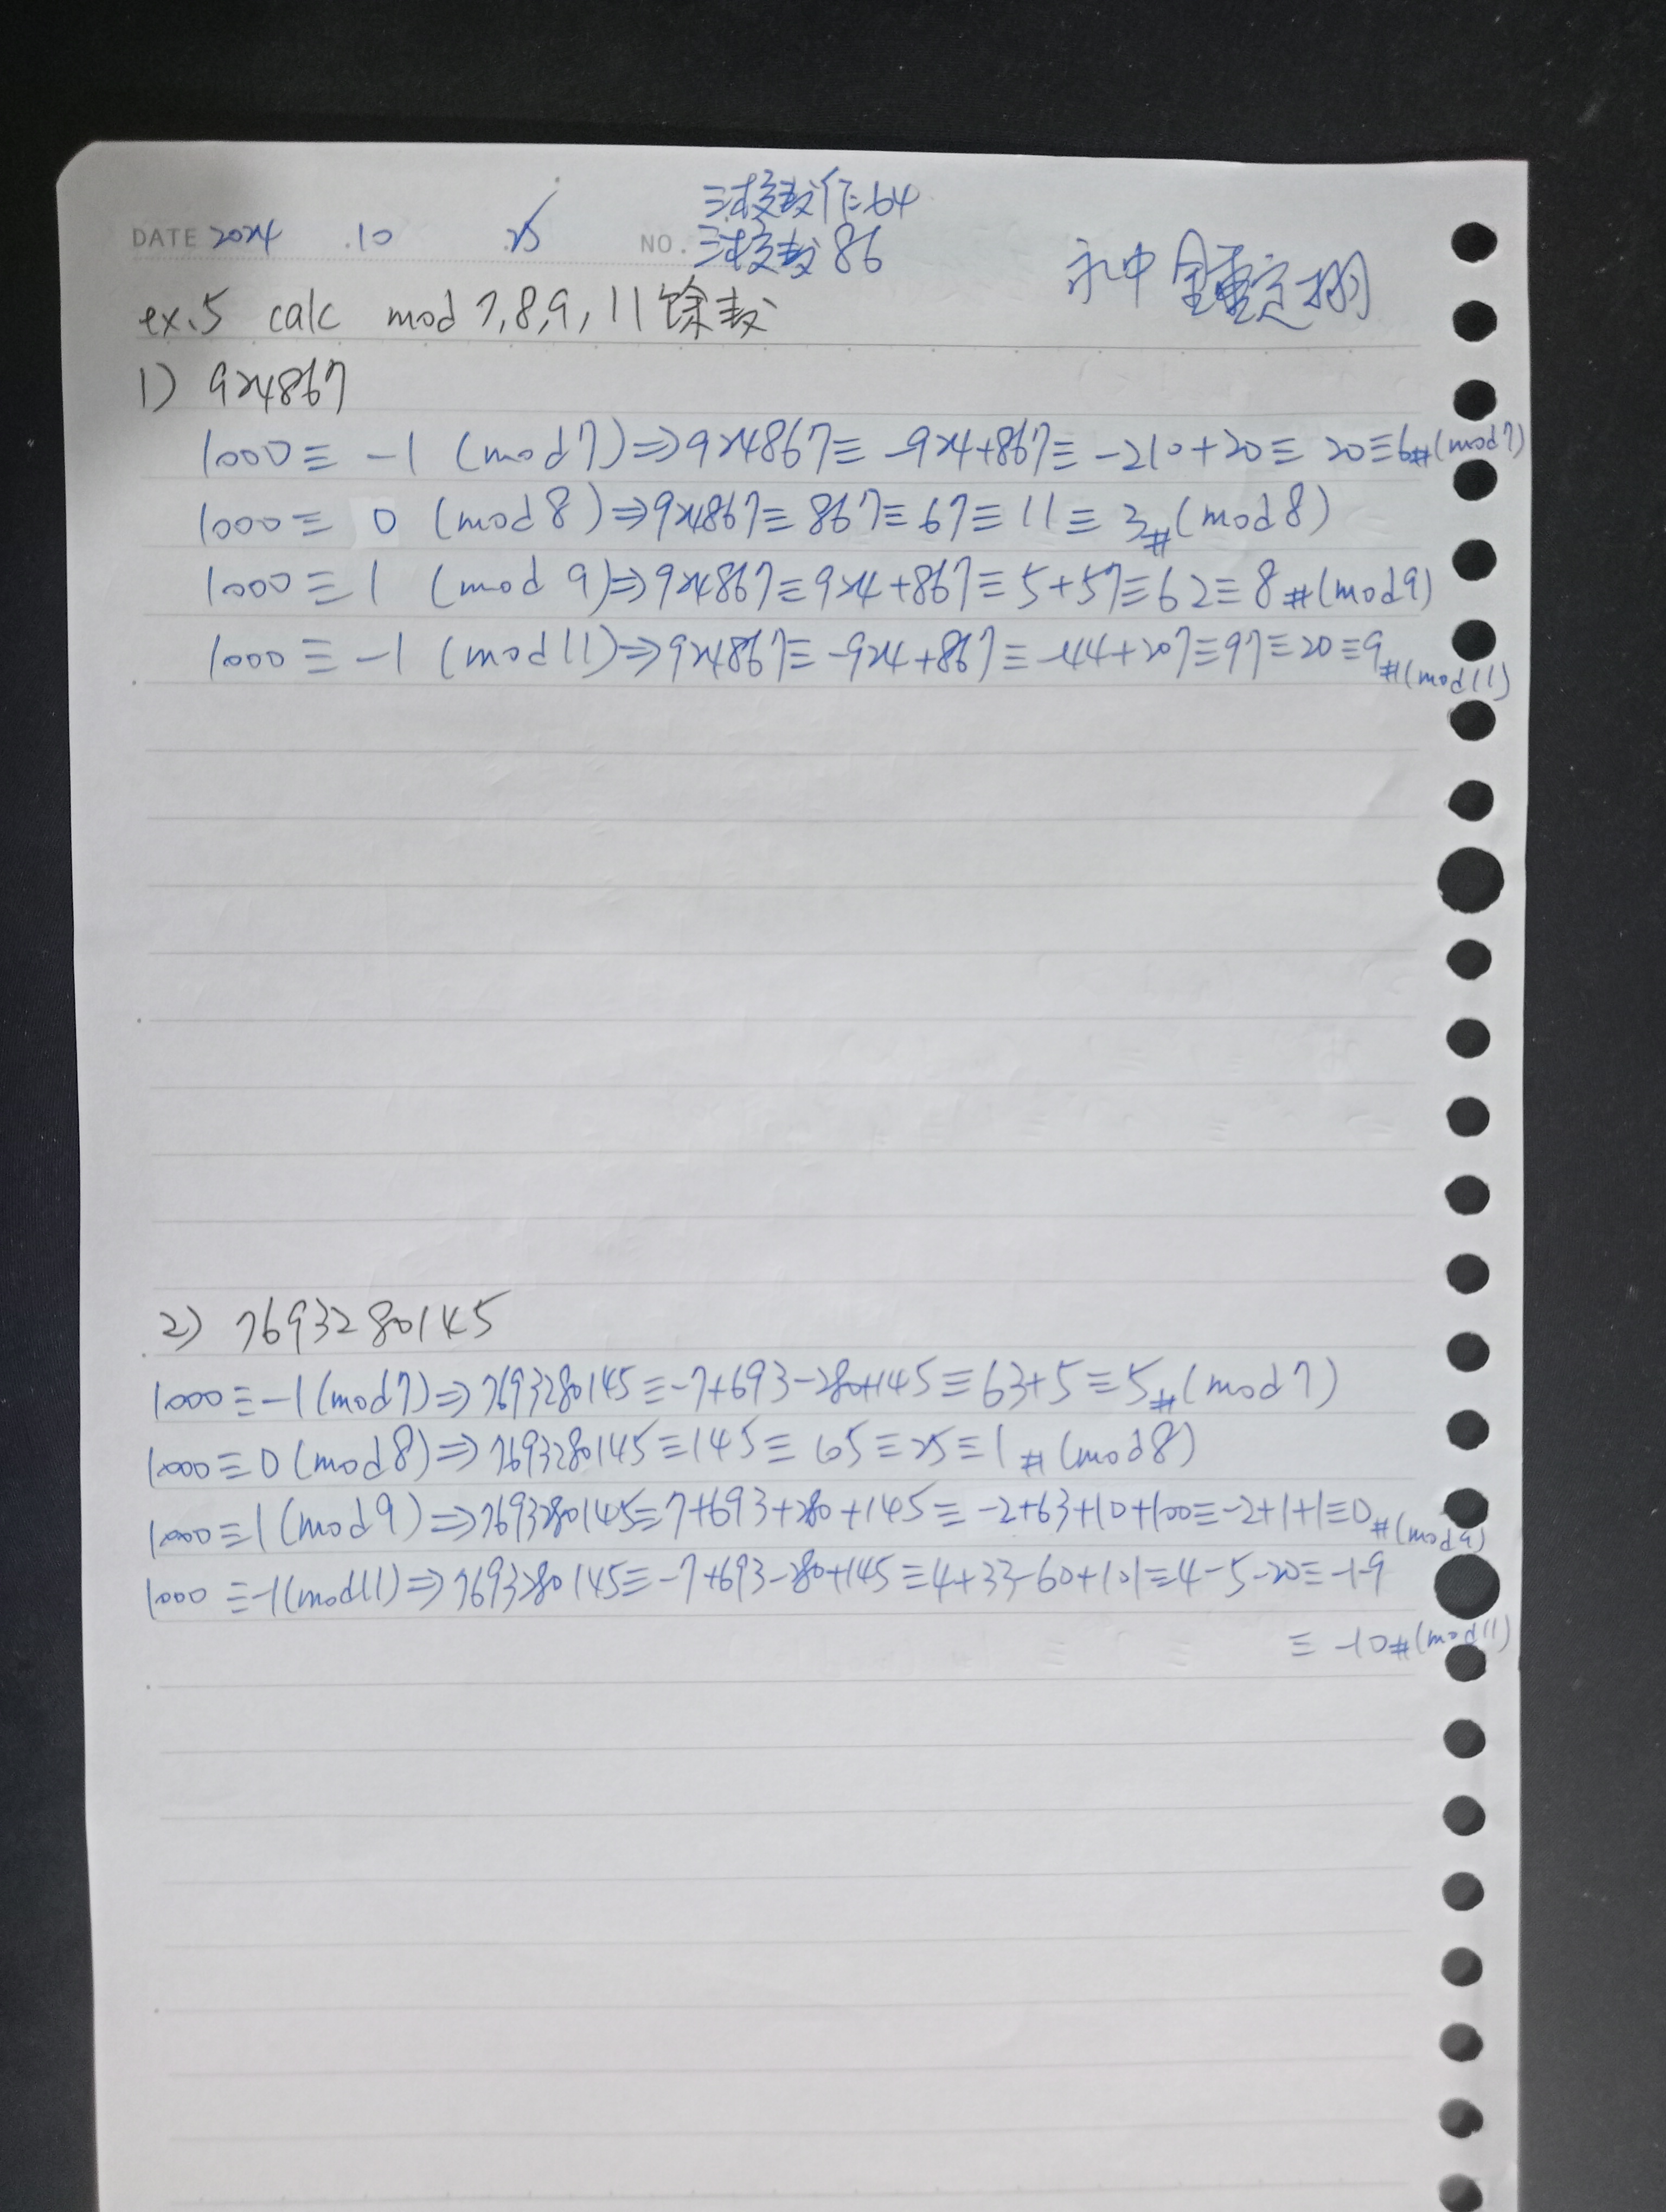 三校数作64
DATE 2024 .10 .25 NO. 三校数86
永中
ex.5 calc mod 7,8,9,11 馀数
1) 924867
1000≡ -1 (mod7)⇒924867≡ -924+867≡ -210+20≡ 20≡6#(mod7)
1000≡ 0 (mod8)⇒924867≡ 867≡ 67≡ 11≡ 3#(mod8)
1000≡ 1 (mod 9)⇒924867≡924+867≡5+57≡62≡8#(mod9)
1000≡ -1 (mod11)⇒924867≡ -924+867≡ -44+207≡97≡20≡9#(mod11)
2) 7693280145
1000≡-1(mod7)⇒7693280145≡-7+693-280+145≡63+5≡5#(mod7)
1000≡0(mod8)⇒7693280145≡145≡65≡25≡1#(mod8)
1000≡1(mod9)⇒7693280145≡7+693+280+145≡-2+63+10+100≡-2+1+1≡0#(mod9)
1000≡-1(mod11)⇒7693280145≡-7+693-280+145≡4+33-60+101≡4-5-20≡-1-9
≡ -10#(mod11)